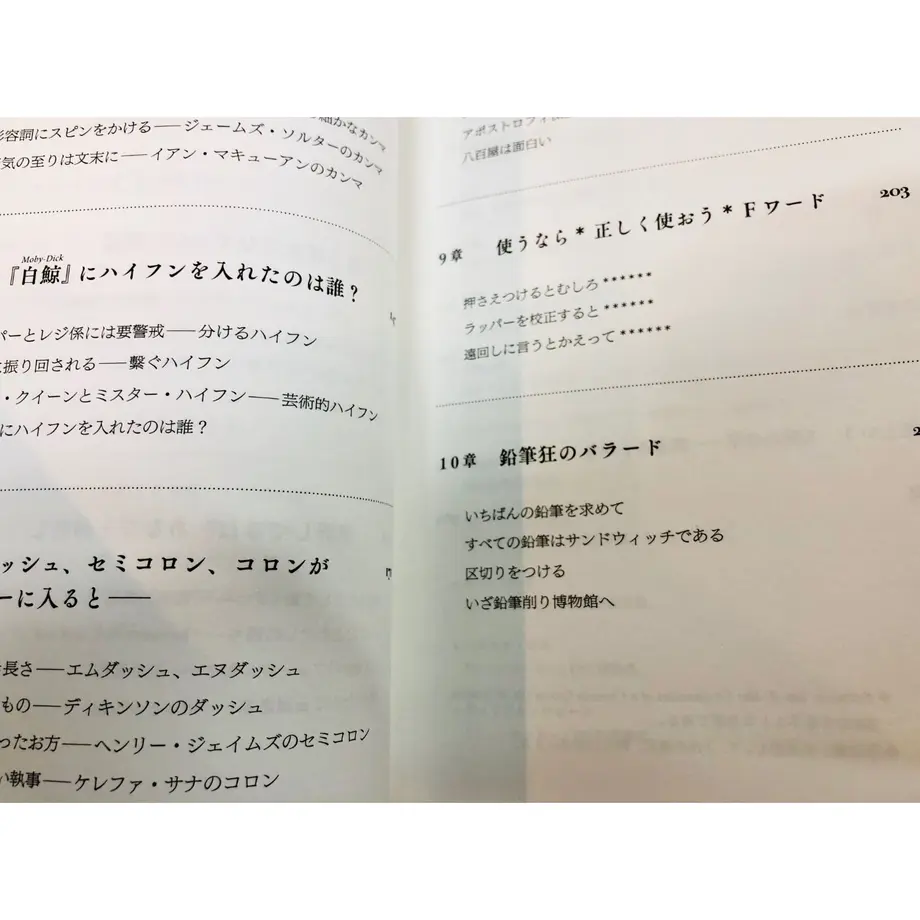 細かなカンマ
形容詞にスピンをかける――ジェームズ・ソルターのカンマ
気の至りは文末に――イアン・マキューアンのカンマ
Moby-Dick
『白鯨』にハイフンを入れたのは誰？
パーとレジ係には要警戒――分けるハイフン
振り回される――繋ぐハイフン
・クイーンとミスター・ハイフン――芸術的ハイフン
にハイフンを入れたのは誰？
ッシュ、セミコロン、コロンが
ーに入ると――
長さ――エムダッシュ、エヌダッシュ
もの――ディキンソンのダッシュ
ったお方――ヘンリー・ジェイムズのセミコロン
い執事――ケレファ・サナのコロン
アポストロフィ
八百屋は面白い
9章 使うなら＊正しく使おう＊Fワード 203
押さえつけるとむしろ＊＊＊＊＊＊
ラッパーを校正すると＊＊＊＊＊＊
遠回しに言うとかえって＊＊＊＊＊＊
10章 鉛筆狂のバラード
いちばんの鉛筆を求めて
すべての鉛筆はサンドウィッチである
区切りをつける
いざ鉛筆削り博物館へ